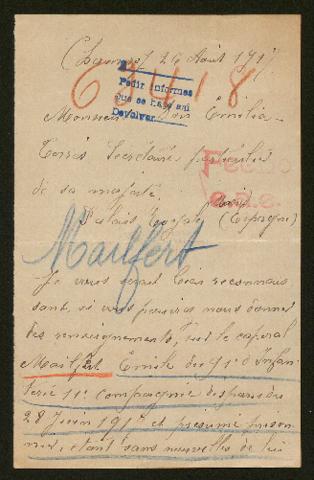 26 Août 191
63418
Pedir informes
que se hace así
Devolver
Monsieur Don Emilia
Torrés Secrétaire particulier
de sa majesté
Palais Royal (Espagne)
Mailfert
Je vous serait bien reconnais
sant, si vous pouviez nous donner
des renseignements, sur le caporal
Mailfert Emile du 91e d'Infan
terie 11e Compagnie disparu le
28 Juin 191 et présumé prison
nier, étant sans nouvelles de lui